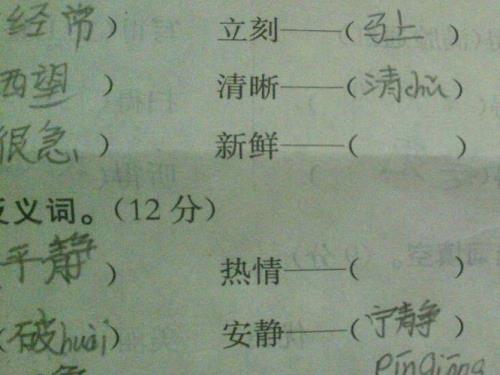 经常） 立刻——（马上）
西望） 清晰——（清chu）
很急） 新鲜——（ ）
反义词。（12分）
平静） 热情——（ ）
（破huai） 安静——（宁静）
pinqiong